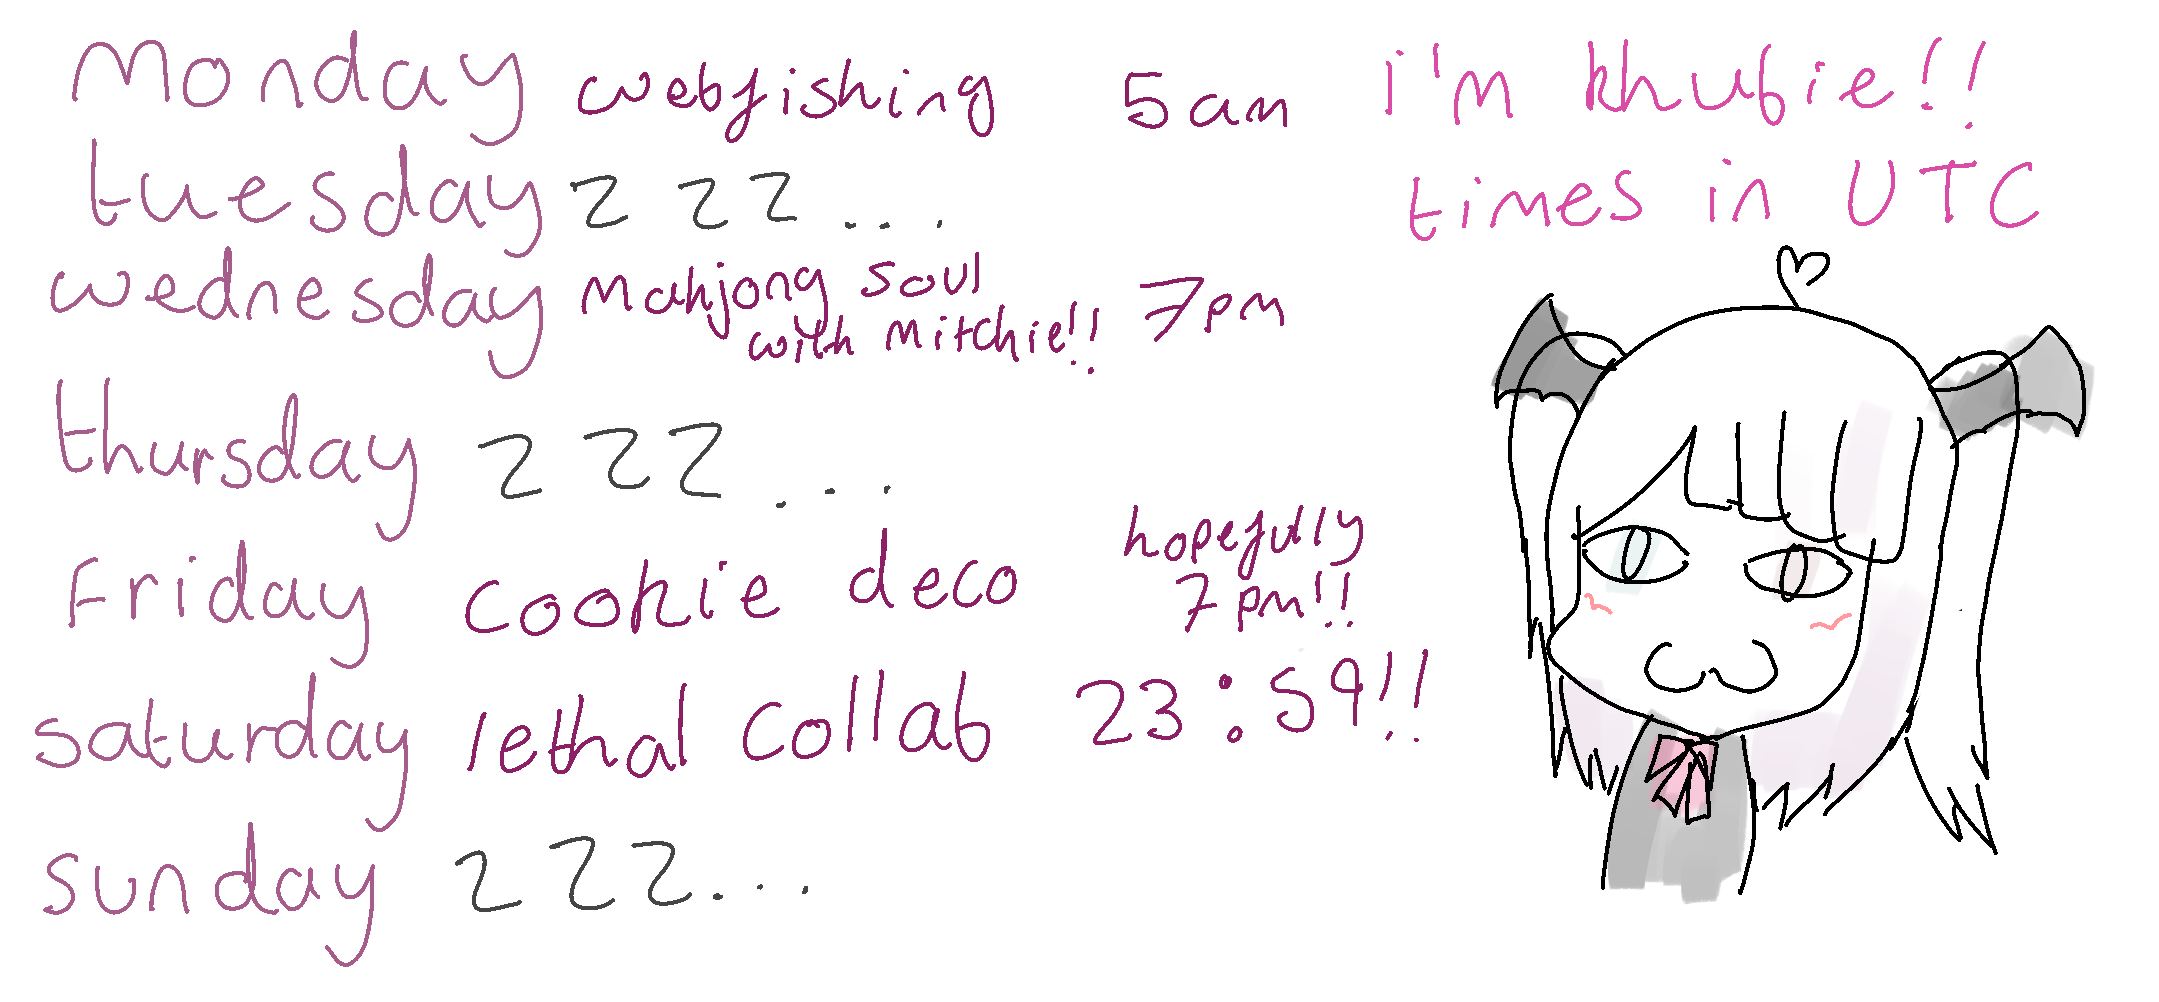 Monday webfishing 5am
tuesday zzz...
wednesday Mahjong soul with Mitchie!! 7pm
thursday zzz...
Friday cookie deco hopefully 7pm!!
saturday lethal collab 23:59!!
sunday zzz...
i'm khubie!!
times in UTC